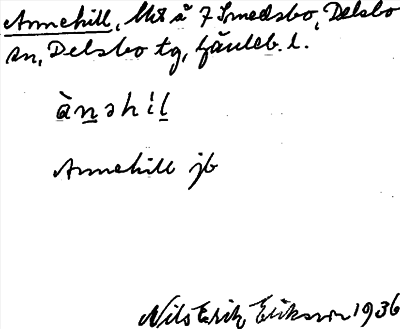 Annehill, Uts å 7 Smedsbo, Delsbo
sn, Delsbo tg, Gäuleb. l.
ànəhil
Annehill jb
Nils Erik Eriksson 1936